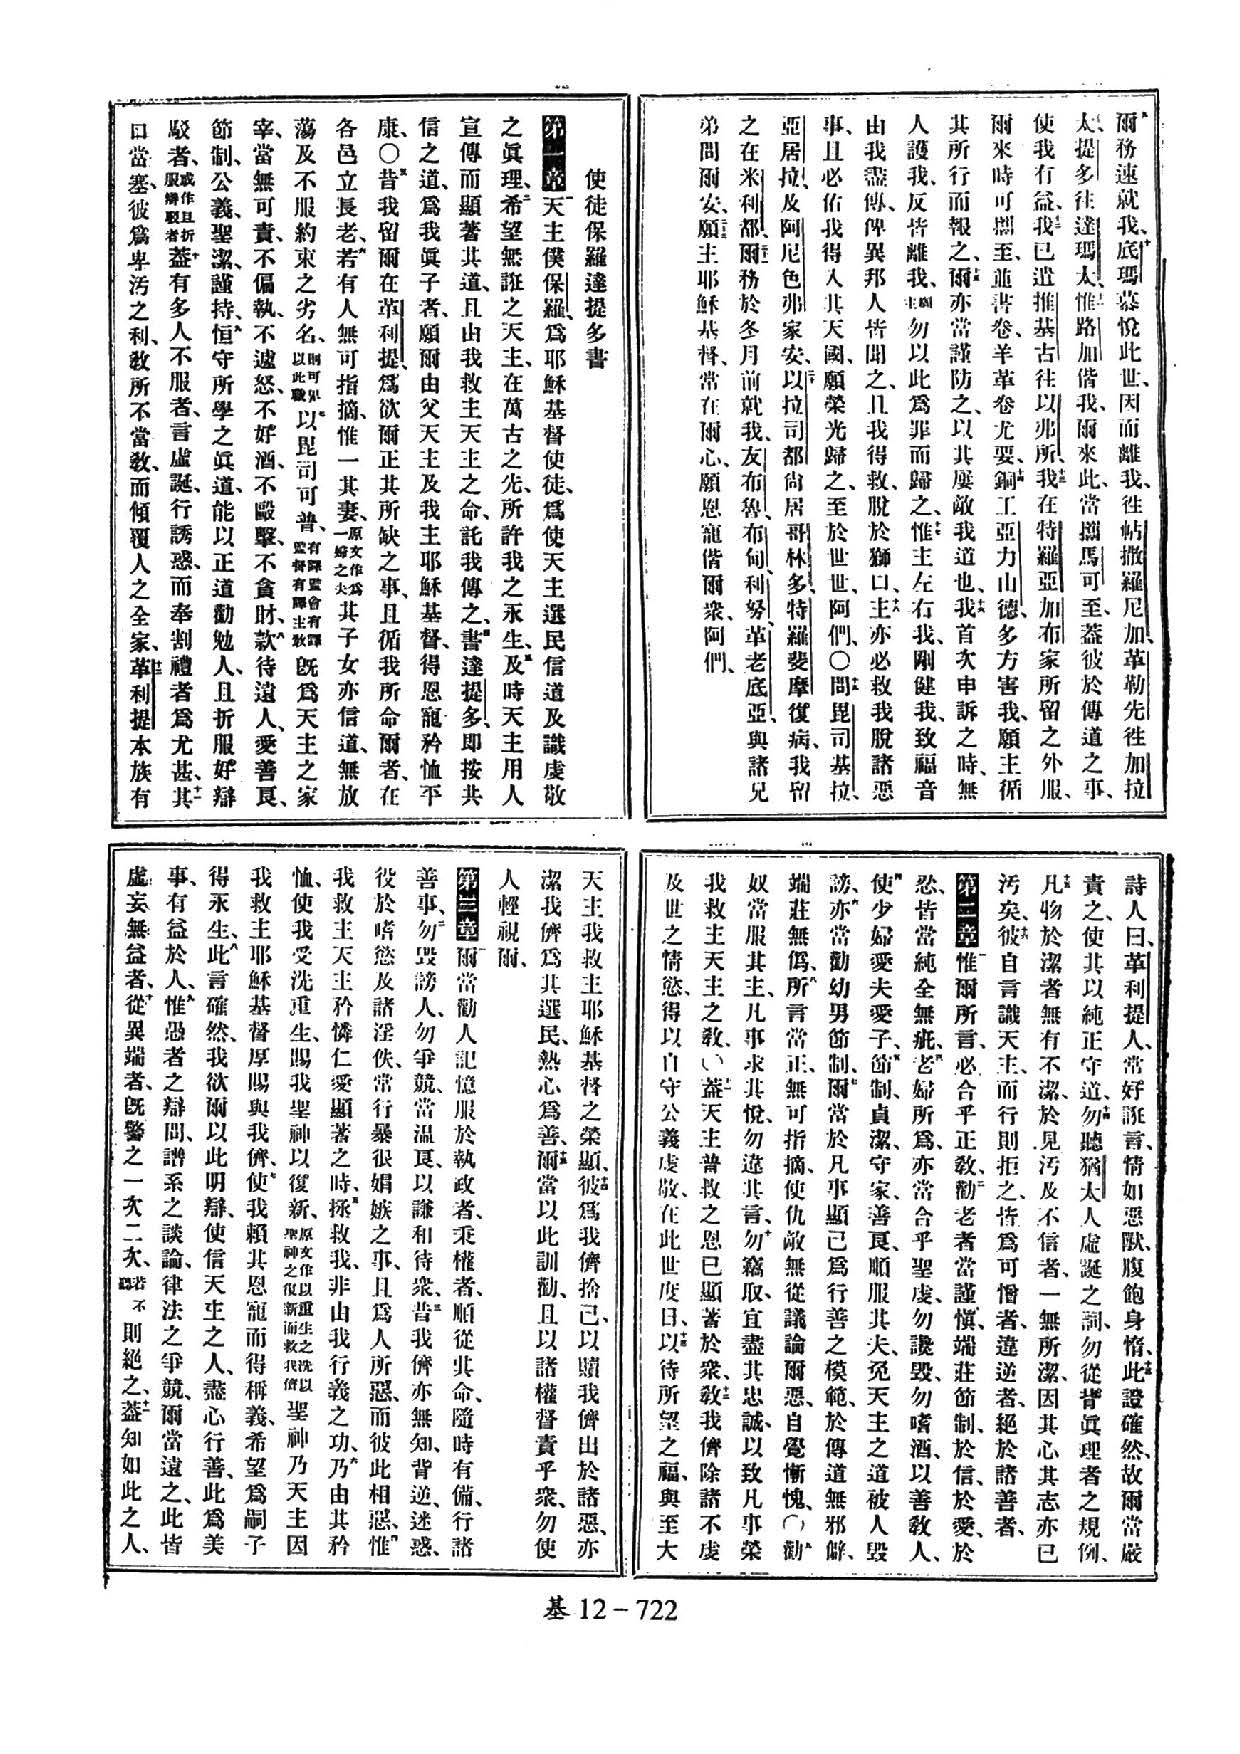 爾務速就我、底瑪慕悅此世、因而離我、往帖撒羅尼加、革勒先往加拉
太、提多往達瑪太、惟路加偕我、爾來此當攜馬可至、蓋彼於傳道之事、
使我有益、我已遣推基古往以弗所、我在特羅亞加布家所留之外服、
爾來時可攜至、並書卷、羊革卷尤要、銅工亞力山德、多方害我、願主循
其所行而報之、爾亦當謹防之、以其屢敵我道也、我首次申訴之時、無
人護我、反皆離我、願主勿以此爲罪而歸之、惟主左右我、剛健我、致福音
由我盡傳、俾異邦人皆聞之、且我得救脫於獅口、主亦必救我脫諸惡
事、且必佑我得入其天國、願榮光歸之、至於世世、阿們、〇問畢司基拉、
亞居拉、及阿尼色弗家安、以拉司都尙居哥林多、特羅斐摩復病、我留
之在米利都、爾務於冬月前就我、友布魯、布甸、利努、革老底亞、與諸兄
弟問爾安、願主耶穌基督、常在爾心、願恩寵偕爾衆、阿們、
使徒保羅達提多書
第一章 天主僕保羅、爲耶穌基督使徒、爲使天主選民信道、及識虔敬
之眞理、希望無誑之天主、在萬古之先、所許我之永生、及時天主用人
宣傳而顯著其道、且由我救主天主之命、託我傳之、書達提多、卽按共
信之道、爲我眞子者、願爾由父天主及我主耶穌基督、得恩寵矜恤平
康、〇昔我留爾在革利提、爲欲爾正其所缺之事、且循我所命爾者、在
各邑立長老、若有人無可指摘、惟一其妻、原文作爲一婦之夫其子女亦信道、無放
蕩及不服約束之劣名、則可畀以此職以毘司可普、有譯監會有譯監督有譯主教旣爲天主之家
宰、當無可責、不偏執、不遽怒、不好酒、不毆擊、不貪財、款待遠人、愛善良、
節制、公義、聖潔、謹持、恒守所學之眞道、能以正道勸勉人、且折服好辯
駁者、或作且折服辯駁者蓋有多人不服者、言虛誕、行誘惑、而奉割禮者爲尤甚、其
口當塞、彼爲卑汚之利、敎所不當敎、而傾覆人之全家、革利提本族有
詩人曰、革利提人常好誑言、情如惡獸、腹飽身惰、此證確然、故爾當嚴
責之、使其以純正守道、勿聽猶太人虛誕之詞、勿從背眞理者之規例、
凡物於潔者無有不潔、於見汚及不信者、一無所潔、因其心其志亦已
汚矣、彼自言識天主、而行則拒之、皆爲可憎者、違逆者、絕於諸善者、
第二章 惟爾所言、必合乎正敎、勸老者當謹愼、端莊節制、於信、於愛、於
忍、皆當純全無疵、老婦所爲、亦當合乎聖虔、勿讒毀、勿嗜酒、以善敎人、
使少婦愛夫愛子、節制貞潔、守家善良、順服其夫、免天主之道被人毀
謗、亦當勸幼男節制、爾當於凡事顯已爲行善之模範、於傳道無邪僻、
端莊無僞、所言當正、無可指摘、使仇敵無從議論爾惡、自覺慚愧、〇勸
奴當服其主、凡事求其悅、勿違其言、勿竊取、宜盡其忠誠、以致凡事榮
我救主天主之敎、〇蓋天主普救之恩已顯著於衆、敎我儕除諸不虔
及世之情慾、得以自守公義虔敬、在此世度日、以待所望之福、與至大
天主我救主耶穌基督之榮顯、彼爲我儕捨己、以贖我儕出於諸惡、亦
潔我儕爲其選民、熱心爲善、爾當以此訓勸、且以諸權督責乎衆、勿使
人輕視爾、
第三章 爾當勸人記憶服於執政者、秉權者、順從其命、隨時有備、行諸
善事、勿毀謗人、勿爭競、當溫良、以謙和待衆、昔我儕亦無知、背逆、迷惑、
役於嗜慾及諸淫佚、常行暴很娼嫉之事、且爲人所惡、而彼此相惡、惟
我救主天主矜憐仁愛顯著之時、拯救我、非由我行義之功、乃由其矜
恤、使我受洗重生、賜我聖神以復新、原文作以重生之洗以聖神之復新而救我儕聖神乃天主因
我救主耶穌基督厚賜與我儕、使我賴其恩寵而得稱義、希望爲嗣子
得永生、此言確然、我欲爾以此明辯、使信天主之人、盡心行善、此爲美
事、有益於人、惟愚者之辯問、譜系之談論、律法之爭競、爾當遠之、此皆
虛妄無益者、從異端者、旣警之一次二次、若不聽則絕之、蓋知如此之人、
基 12－722